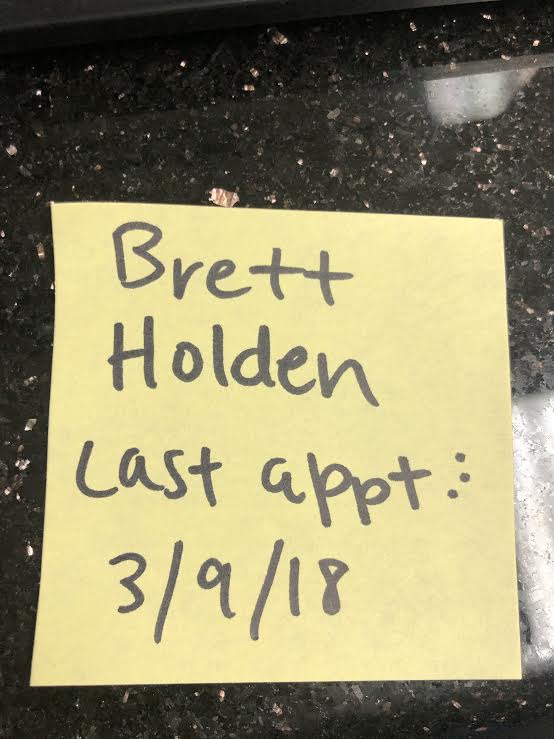 Brett
Holden
Last appt:
3/9/18